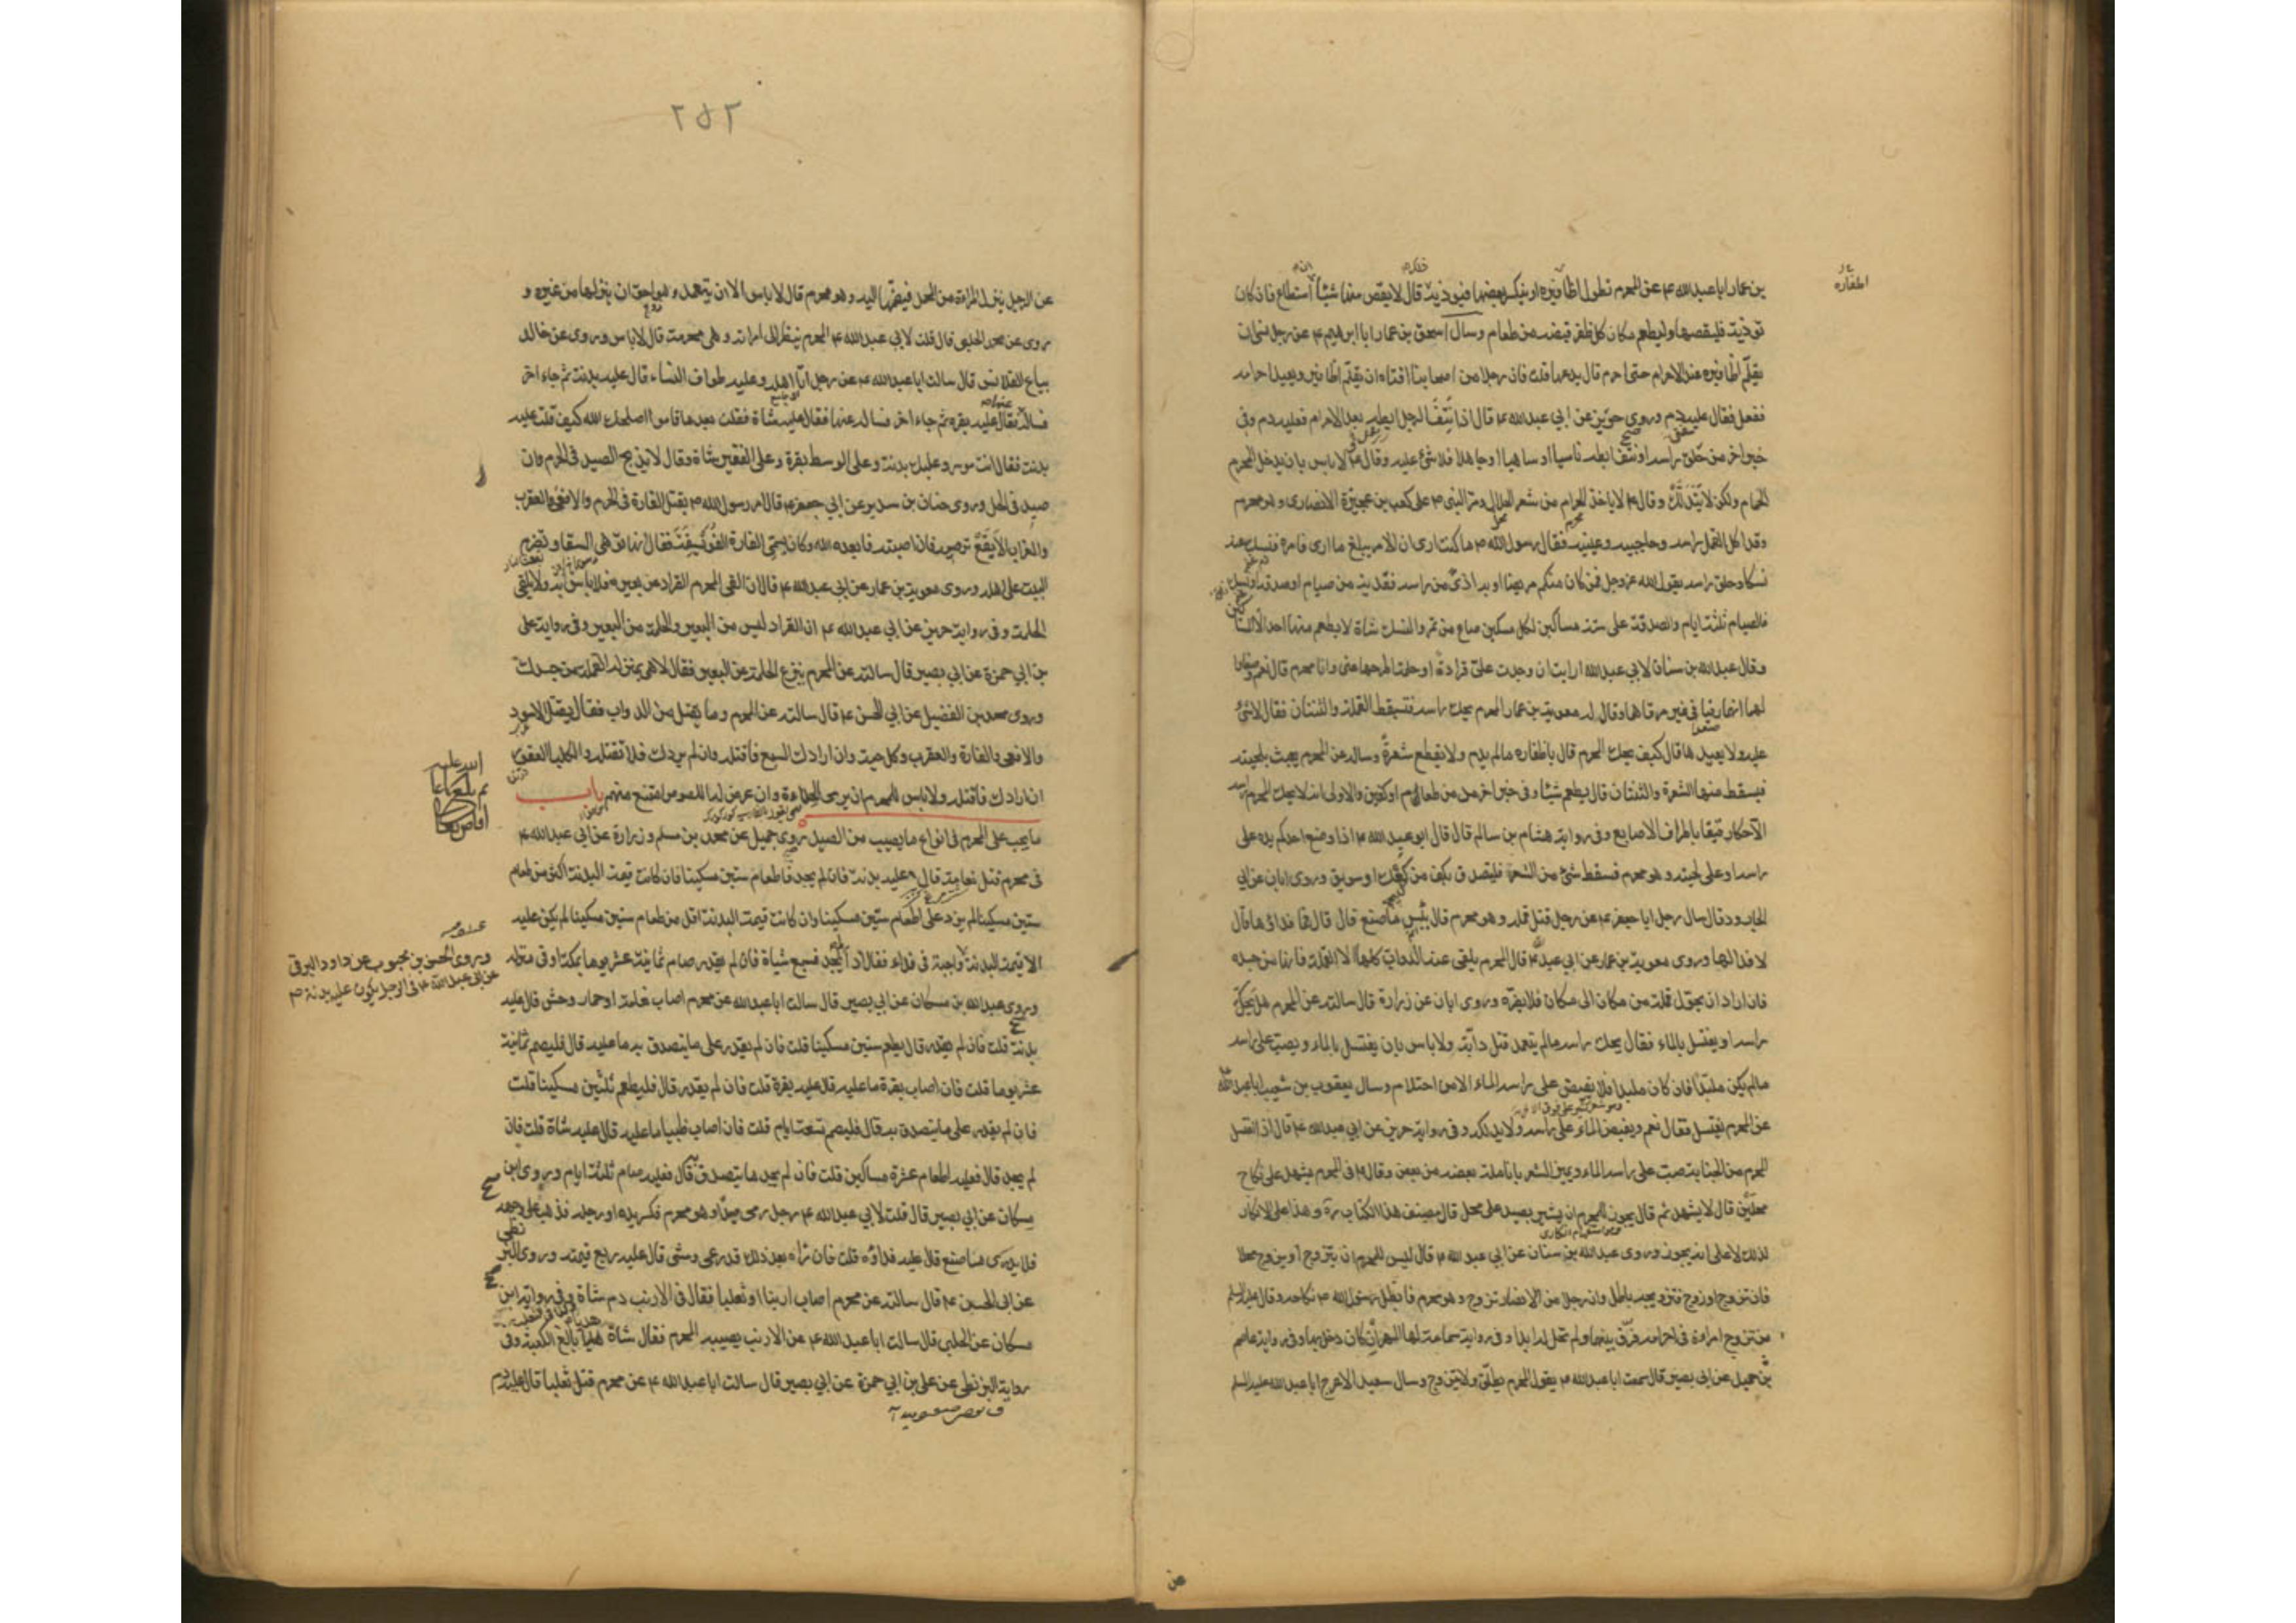 بن عمار ابا عبد الله ع عن المحرم تطول اظافيره او ينكسر بعضها فيوذيه قال لا يقص منها شيئا ان استطاع فان كان
توذيه فليقصها وليطعم مكان كل ظفر قبضه من طعام وسال اسحق بن عمار ابا ابرهيم ع عن رجل نسى ان
يقلم اظافيره عند الاحرام حتى احرم قال يدعها قلت فان رجلا من اصحابنا افتاه ان يقلم اظافيره ويعيد احرامه
ففعل فقال عليه دم وروى حريز عن ابي عبد الله ع قال اذا نتف الرجل ابطيه بعد الاحرام فعليه دم وفي
خبر اخر من حلق راسه او نتف ابطه ناسيا او ساهيا او جاهلا فلا شئ عليه وقال ع لا باس بان يدخل المحرم
الحمام ولكن لا يتدلك وقال ع لا ياخذ الحرام من شعر الحلال ومر النبى ص على كعب بن عجرة الانصارى وهو محرم
وقد اكل القمل راسه وحاجبيه وعينيه فقال رسول الله ص ما كنت ارى ان الامر يبلغ ما ارى فامره فنسك عنه
نسكا وحلق راسه يقول الله عز وجل فمن كان منكم مريضا او به اذى من راسه ففدية من صيام او صدقة او نسك
فالصيام ثلثة ايام والصدقة على ستة مساكين لكل مسكين صاع من تمر والنسك شاة لا يطعم منها احد الا المساكين
وقال عبد الله بن سنان لابي عبد الله ارايت ان وجدت علي قرادة او حلمة اطرحها عنى وانا محرم قال نعم وصغارا
لهما انهما رقيا في غير مرقاهما وقال له معوية بن عمار المحرم يحك راسه فتسقط القملة والثنتان فقال لا شئ
عليه ولا يعيدها قال كيف يحك المحرم قال باظفاره ما لم يدم ولا يقطع شعرة وساله عن المحرم يعبث بلحيته
فيسقط منها الشعرة والثنتان قال يطعم شيئا وفى خبر اخر مد من طعام او كفين والاولى ان لا يحك المحرم راسه
الا حكا رفيقا باطراف الاصابع وفى رواية هشام بن سالم قال قال ابو عبد الله ع اذا وضع احدكم يده على
راسه او على لحيته وهو محرم فسقط شئ من الشعر فليتصدق بكف من كعك او سويق وروى ابان عن ابي
الجارود قال سال رجل ابا جعفر ع عن رجل قتل قملة وهو محرم قال بئس ما صنع قال قال فما فداؤها قال
لا فدا لها وروى معوية بن عمار عن ابي عبد الله ع قال المحرم يلقى عنه الدواب كلها الا القملة فانها من جسده
فان اراد ان يحول قملة من مكان الى مكان فلا يضره وروى ابان عن زرارة قال سالته عن المحرم هل يحك
راسه او يغتسل بالماء فقال يحك راسه ما لم يتعمد قتل دابة ولا باس بان يغتسل بالماء ويصب على راسه
ما لم يكن ملبدا فان كان ملبدا فلا يفيض على راسه الماء الا من احتلام وسال يعقوب بن شعيب ابا عبد الله
عن المحرم يغتسل فقال نعم ويفيض الماء على راسه ولا يدلكه وفى رواية حريز عن ابي عبد الله ع قال اذا اغتسل
المحرم من الجنابة صب على راسه الماء ويميز الشعر بانامله بعضه من بعض وقال ع فى المحرم يشهد على نكاح
محلين قال لا يشهد ثم قال يجوز للمحرم ان يشير بصيد على محل قال مصنف هذا الكتاب ره وهذا على الانكار
لذلك لا على انه يجوز وروى عبد الله بن سنان عن ابي عبد الله ع قال ليس للمحرم ان يتزوج او يزوج محلا
فان تزوج او زوج فتزويجه باطل وان رجلا من الانصار تزوج وهو محرم فابطل رسول الله ص نكاحه وقال عليه السلم
من تزوج امراة فى احرامه فرق بينهما ولم تحل له ابدا وفى رواية سماعة لها المهر ان كان دخل بها وفى رواية عاصم
بن حميد عن ابي بصير قال سمعت ابا عبد الله ع يقول المحرم يطلق ولا يتزوج وسال سعيد الاعرج ابا عبد الله عليه السلم
اظفاره
عن
٢٥٢
عن الرجل ينزل المراة من المحمل فيضمها اليه وهو محرم قال لا باس الا ان يتعمد وهو احق ان ينزلها من غيره و
روى عن محمد الحلبي قال قلت لابي عبد الله ع المحرم ينظر الى امراته وهى محرمة قال لا باس وروى عن خالد
بياع القلانس قال سالت ابا عبد الله ع عن رجل اتى اهله وعليه طواف النساء قال عليه بدنة ثم جاء اخر
فساله فقال عليه بقرة ثم جاء اخر فساله عنها فقال عليه شاة فقلت بعد ما قاموا اصلحك الله كيف قلت عليه
بدنة فقال انت موسر وعليك بدنة وعلى الوسط بقرة وعلى الفقير شاة وقال لا يذبح الصيد فى الحرم وان
صيد فى الحل وروى حنان بن سدير عن ابي جعفر ع قال امر رسول الله ص بقتل الفارة فى الحرم والافعى والعقرب
والغراب الابقع ترميه فان اصبته فابعده الله وكان يسمى الفارة الفويسقة فقال انها توهى السقا وتضرم
البيت على اهله وروى معوية بن عمار عن ابي عبد الله ع قال ان القى المحرم القراد عن بعيره فلا باس به ولا يلقى
الحلمة وفى رواية حريز عن ابي عبد الله ع ان القراد ليس من البعير والحلمة من البعير وفى رواية على
بن ابي حمزة عن ابي بصير قال سالته عن المحرم ينزع الحلمة عن البعير فقال لا هى بمنزلة القملة من جسدك
وروى محمد بن الفضيل عن ابي الحسن ع قال سالته عن المحرم وما يقتل من الدواب فقال يقتل الاسود
والافعى والفارة والعقرب وكل حية وان ارادك السبع فاقتله وان لم يردك فلا تقتله والكلب العقور
ان ارادك فاقتله ولا باس للمحرم ان يرمى الحداة وان عرض له اللصوص امتنع منهم باب
ما يجب على المحرم فى انواع ما يصيب من الصيد روى جميل عن محمد بن مسلم وزرارة عن ابي عبد الله ع
فى محرم قتل نعامة قال عليه بدنة فان لم يجد فاطعام ستين مسكينا فان كانت قيمة البدنة اكثر من طعام
ستين مسكينا لم يزد على اطعام ستين مسكينا وان كانت قيمة البدنة اقل من طعام ستين مسكينا لم يكن عليه
الا قيمة البدنة واجبة فى فداء فقال اذا لم يجد فسبع شياة فان لم يقدر صام ثمانية عشر يوما بمكة او فى منزله
وروى عبد الله بن مسكان عن ابي بصير قال سالت ابا عبد الله عن محرم اصاب نعامة او حمار وحش قال عليه
بدنة قلت فان لم يقدر قال يطعم ستين مسكينا قلت فان لم يقدر على ما يتصدق به ما عليه قال فليصم ثمانية
عشر يوما قلت فان اصاب بقرة ما عليه قال عليه بقرة قلت فان لم يقدر قال فليطعم ثلثين مسكينا قلت
فان لم يقدر على ما يتصدق به قال فليصم تسعة ايام قلت فان اصاب ظبيا ما عليه قال عليه شاة قلت فان
لم يجد قال فعليه اطعام عشرة مساكين قلت فان لم يجد ما يتصدق به قال فعليه صيام ثلثة ايام وروى ابن
مسكان عن ابي بصير قال قلت لابي عبد الله ع رجل رمى صيدا وهو محرم فكسر يده او رجله فذهب على وجهه
فلا يدرى ما صنع قال عليه فداؤه قلت فان راه بعد ذلك قد رعى ومشى قال عليه ربع قيمته وروى البزنطى
عن ابي الحسن ع قال سالته عن محرم اصاب ارنبا او ثعلبا فقال فى الارنب دم شاة وفى رواية ابن
مسكان عن الحلبي قال سالت ابا عبد الله ع عن الارنب يصيبه المحرم فقال شاة هديا بالغ الكعبة وفى
رواية البزنطى عن على بن ابي حمزة عن ابي بصير قال سالت ابا عبد الله ع عن محرم قتل ثعلبا قال عليه دم
وروى الحسن بن محبوب عن داود الرقى
عن ابي عبد الله ع فى الرجل يكون عليه بدنة